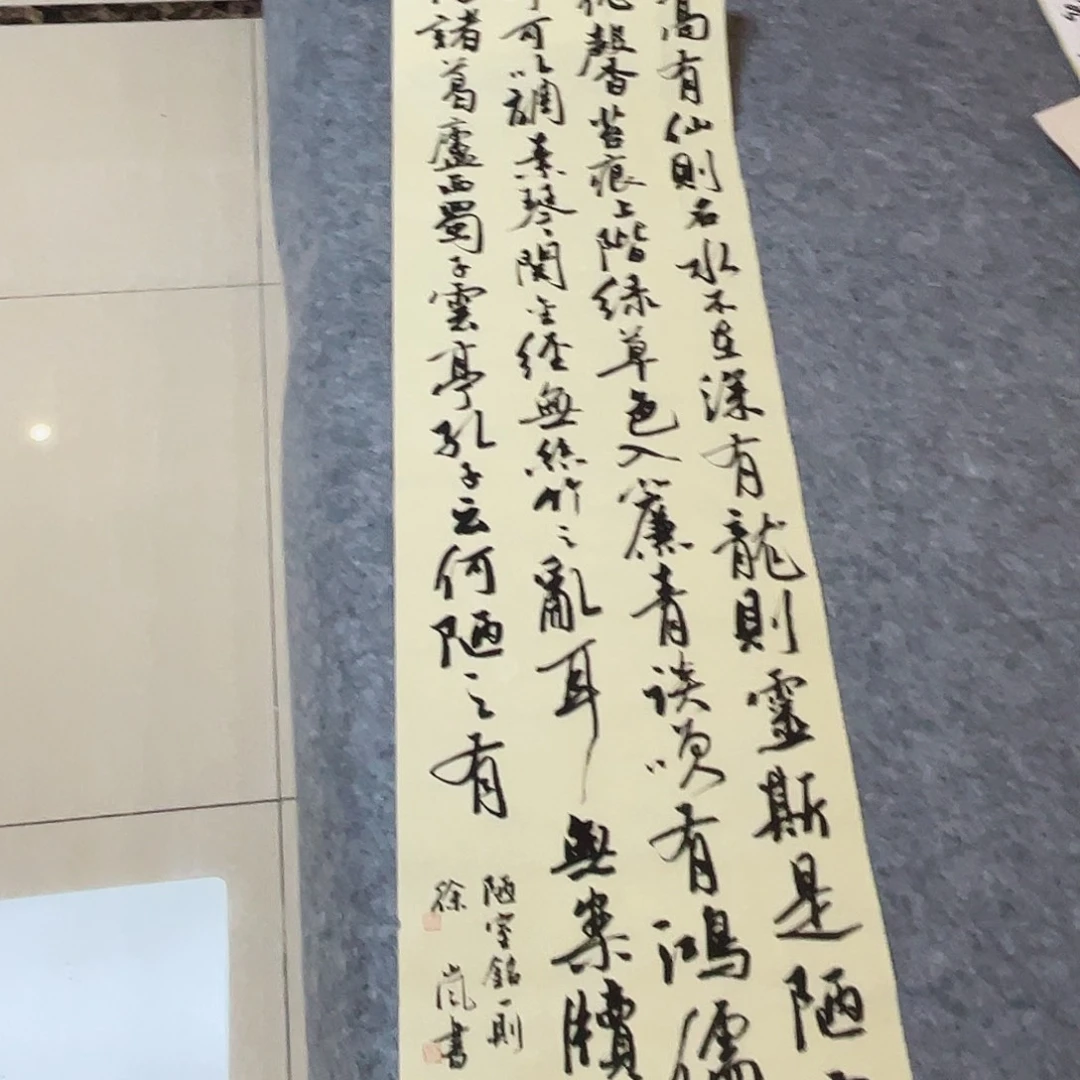 高有仙則名水不在深有龍則靈斯是陋
馨苔痕上階緑草色入簾青談笑有鴻儒
可以調素琴閱金經無絲竹之亂耳無案牘
諸葛廬西蜀子雲亭孔子云何陋之有
陋室銘一則
徐嵐書